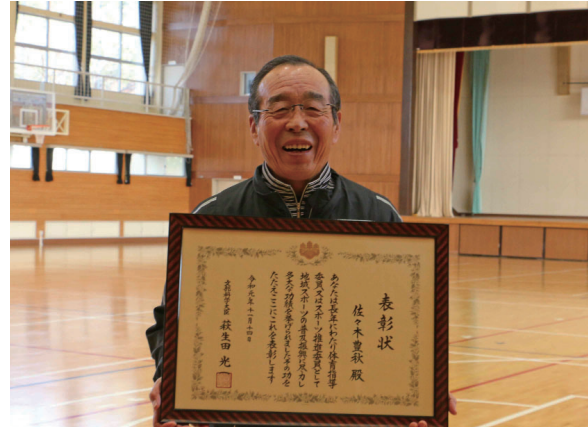 表彰状
佐々木豊秋 殿
あなたは長年にわたり体育指導
委員又はスポーツ推進委員として
地域スポーツの普及振興に尽力し
多大な功績を挙げられましたその功を
たたえここにこれを表彰します
令和元年十一月十四日
文部科学大臣 萩生田 光一